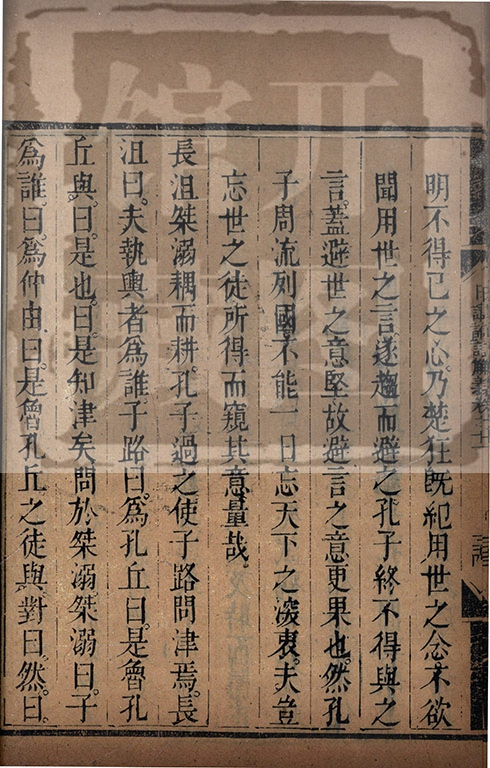 明不得已之心乃楚狂旣絕用世之念不欲
聞用世之言遂趨而避之孔子終不得與之
言蓋避世之意堅故避言之意更果也然孔
子周流列國不能一日忘天下之深衷夫豈
忘世之徒所得而窺其意量哉
長沮桀溺耦而耕孔子過之使子路問津焉長
沮曰夫執輿者爲誰子路曰爲孔丘曰是魯孔
丘與曰是也曰是知津矣問於桀溺桀溺曰子
爲誰曰爲仲由曰是魯孔丘之徒與對曰然曰